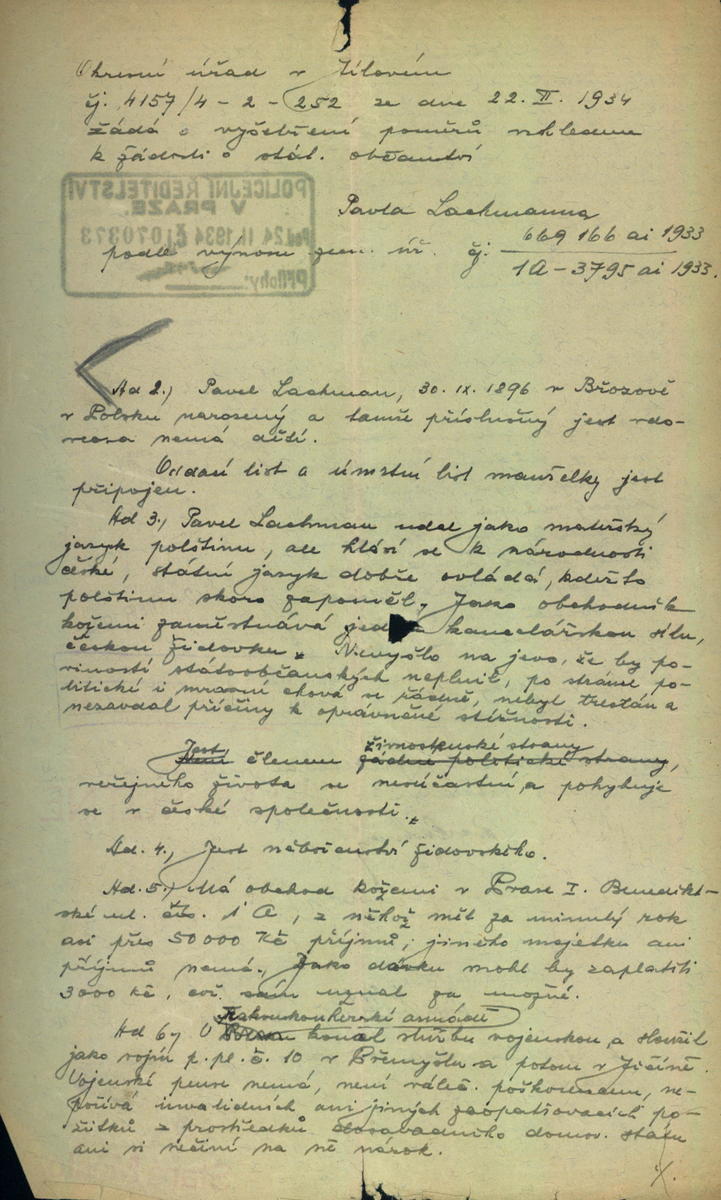 Okresní úřad v Jílovém
čj. 4157/4 - 2 - 252 ze dne 22. II. 1934
žádá o vyšetření poměrů vzhledem
k žádosti o stát. občanství
Pavla Lachmanna
podle výnosu zem. úř. čj. 669 166 ai 1933
1A - 3795 ai 1933.
POLICEJNÍ ŘEDITELSTVÍ
V PRAZE.
24. II. 1934 č. 070373
Přílohy:
Ad 2.) Pavel Lachman, 30. IX. 1896 v Březově
v Polsku narozený a tamže příslušný jest vdo-
vcem nemá dětí.
Oddací list a úmrtní list manželky jest
připojen.
Ad 3.) Pavel Lachman udal jako mateřský
jazyk polštinu, ale hlásí se k národnosti
české, státní jazyk dobře ovládá, kdežto
polštinu skoro zapoměl. Jako obchodník
kožemi zaměstnává kancelářskou sílu,
českou židovku. Nevyšlo na jevo, že by po-
vinností státoobčanských neplnil, po stránce po-
litické i mravní chová se řádně, nebyl trestán a
nezavdal příčiny k oprávněné stížnosti.
Jest živnostenské strany
Není členem žádné politické strany,
veřejného života se nesúčastní a pohybuje
se v české společnosti.
Ad. 4.) Jest náboženství židovského.
Ad. 5.) Má obchod kožemi v Praze I. Benedikt-
ské ul. čís. 1 A, z něhož měl za minulý rok
asi přes 50 000 Kč příjmů, jiného majetku ani
příjmů nemá. Jako dávku mohl by zaplatiti
3000 kč, což sám uznal za možné.
Rakouskouherské armádě
Ad 6.) V konal službu vojenskou a sloužil
jako vojín p. pl. č. 10 v Přemyšlu a potom v Jičíně.
Vojenské pense nemá, není váleč. poškozencem, ne-
požívá invalidních ani jiných zaopatřovacích po-
žitků z prostředků dosavadního domov. státu
ani si nečiní na ně nárok.
./.